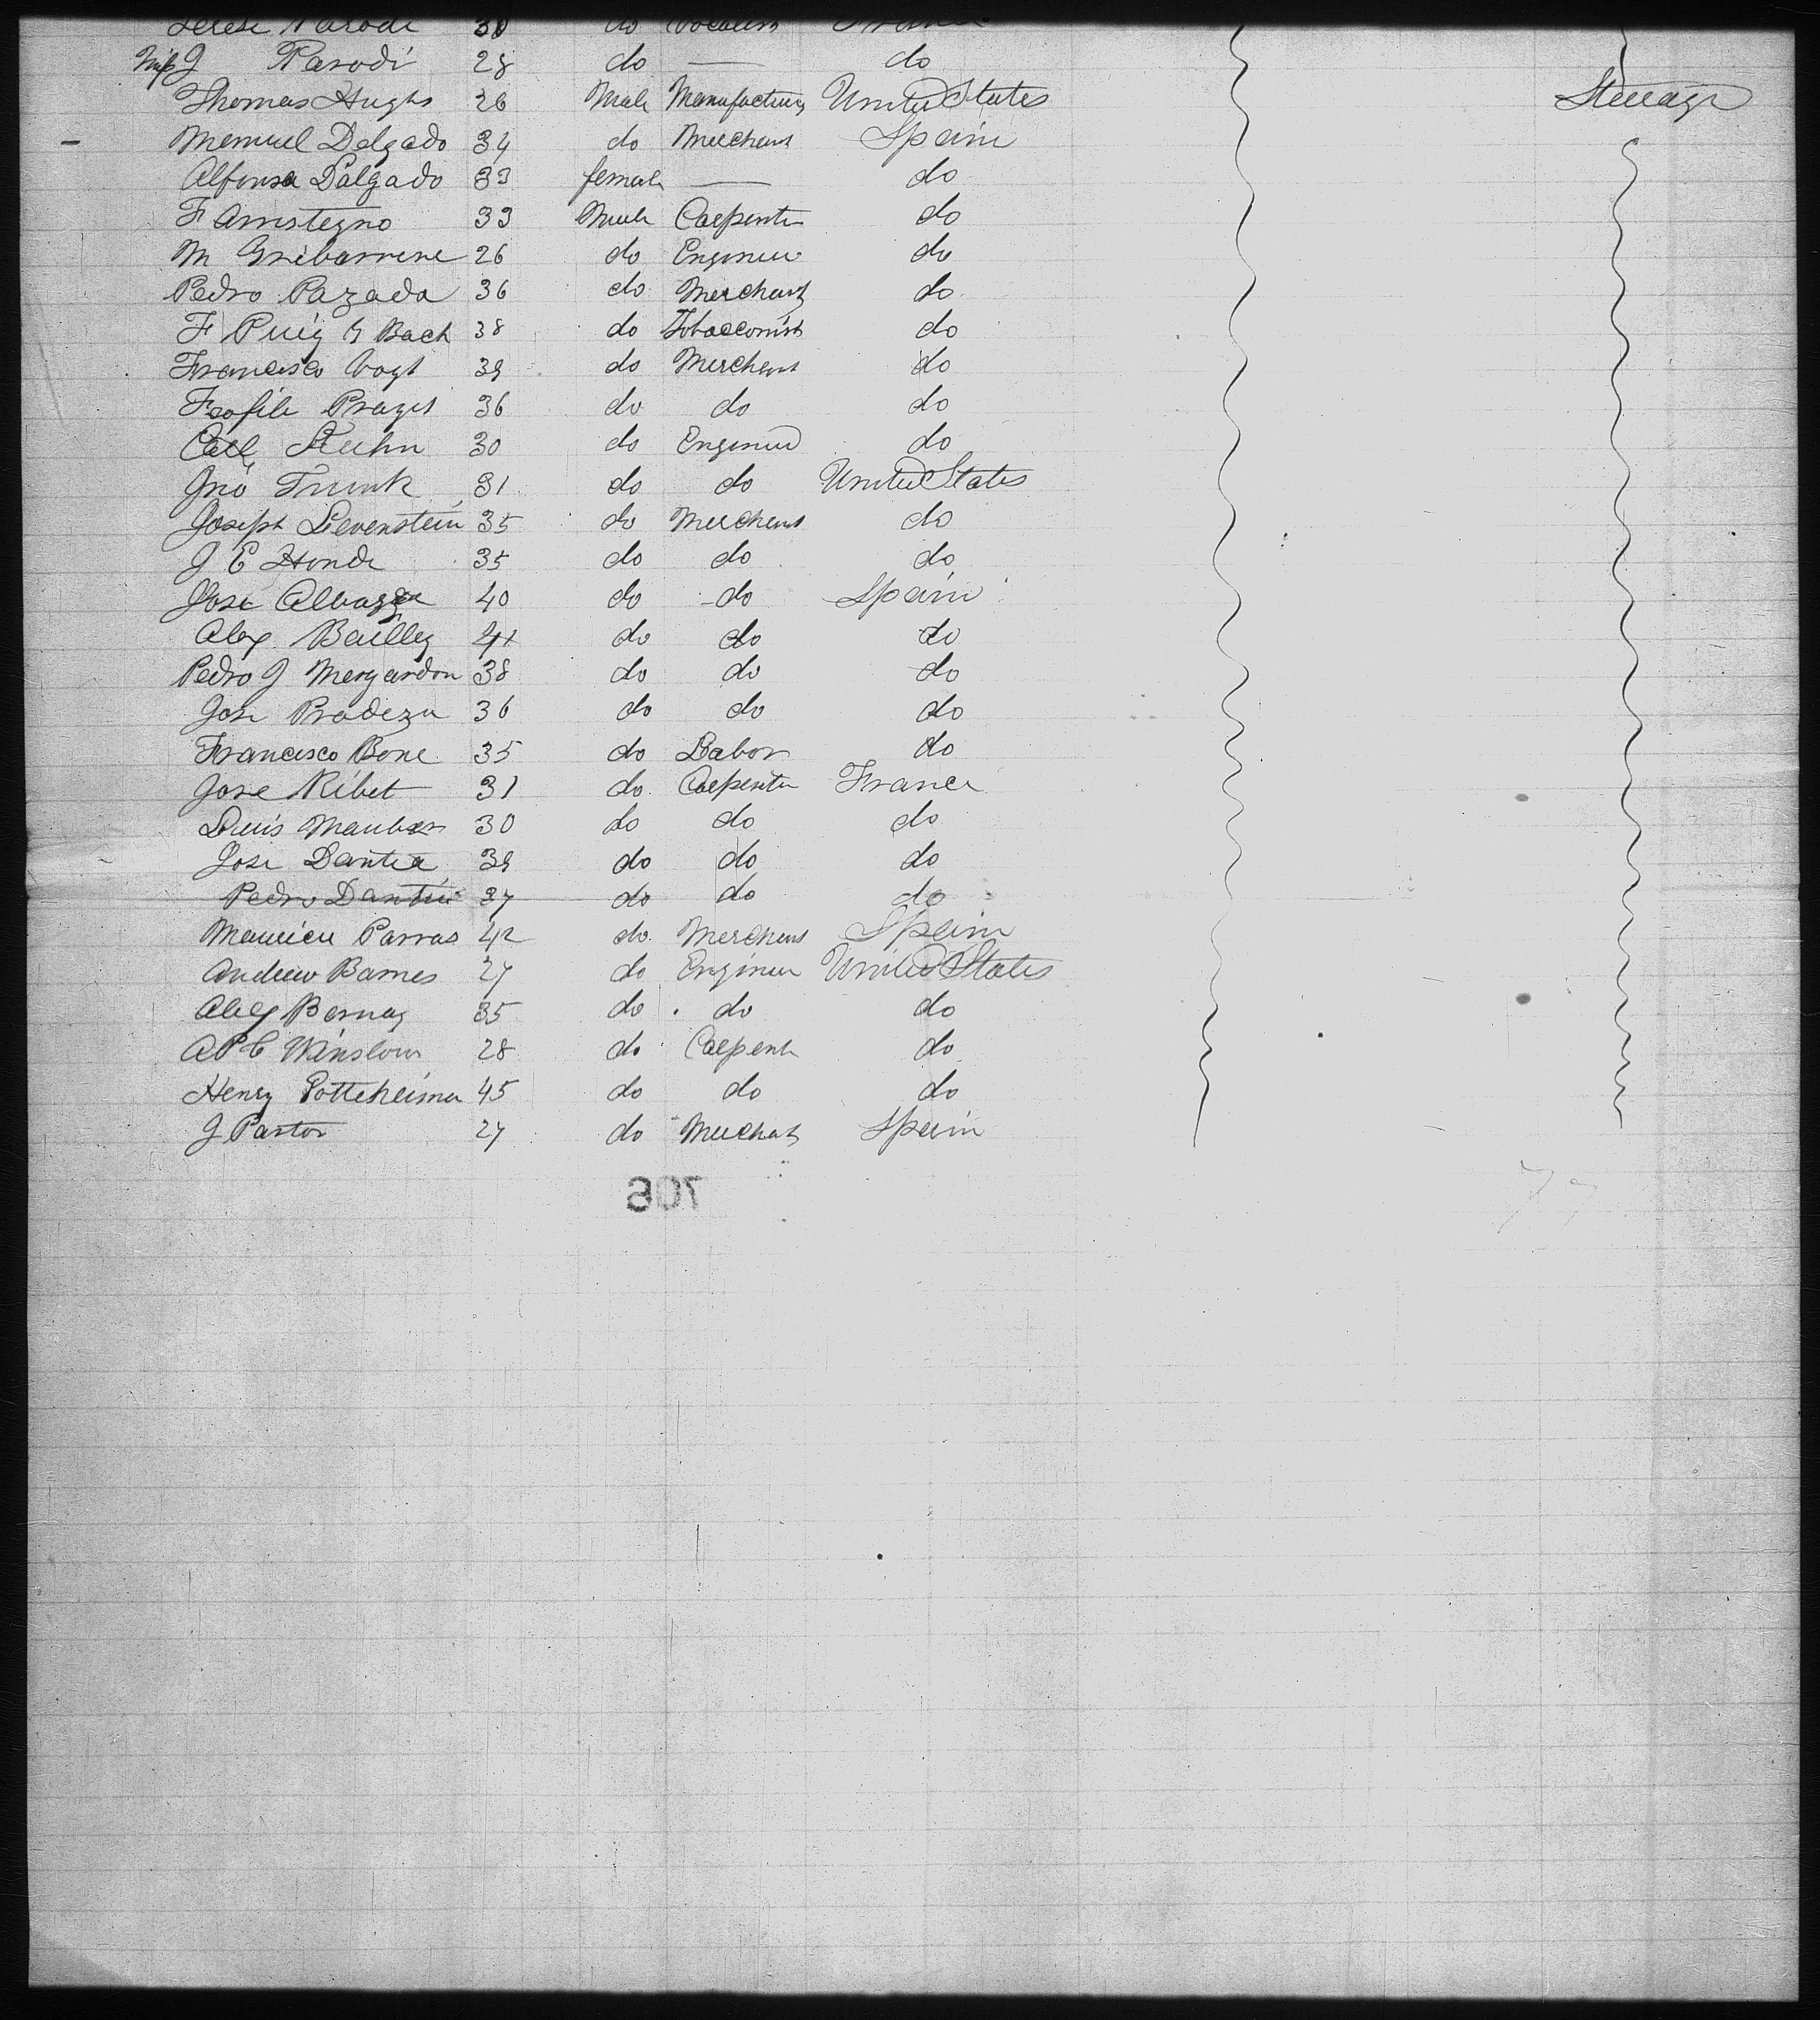 Terese Parodi 30 do Vocalist
Miss J Parodi 28 do — do
Thomas Hughs 26 Male Manufacturing United States Steerage
Manuel Delgado 34 do Merchant Spain
Alfonsa Dalgado 33 female — do
F Arristegno 33 Male Carpenter do
M 26 do Engineer do
Pedro Pazada 36 do Merchant do
F Puig Y Bach 38 do Tobacconist do
Francisco Vogt 39 do Merchant do
Teofile 36 do do do
Carl Stuhn 30 do Engineer do
Jno Trunk 31 do do United States
Joseph Levenstein 35 do Merchant do
J E Honde 35 do do do
Jose 40 do do Spain
Alex Bailley 41 do do do
Pedro J Mergardon 38 do do do
Jose Pradeza 36 do do do
Francisco Bone 35 do Labor do
Jose Ribet 31 do Carpenter France
Luis 30 do do do
Jose Dantia 39 do do do
Pedro 37 do do do
Parras 42 do Merchant Spain
Andrew Barnes 27 do Engineer United States
Alex Bernay 35 do do do
A P C Winslow 28 do Carpent do
Henry Potteheimer 45 do do do
J Pastor 27 do Merchat Spain
706